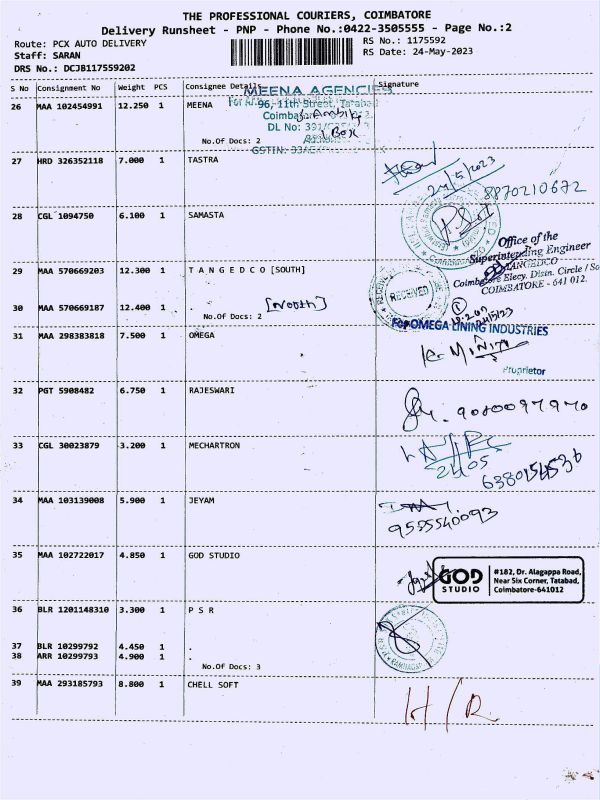 THE PROFESSIONAL COURIERS, COIMBATORE
Delivery Runsheet - PNP - Phone No.:0422-3505555 - Page No.:2
Route: PCX AUTO DELIVERY RS No.: 1175592
Staff: SARAN RS Date: 24-May-2023
DRS No.: DCJB117559202
S No Consignment No Weight PCS Consignee Details Signature
MEENA AGENCIES
26 MAA 102454991 12.250 1 MEENA
96, 11th Street, Tatabad
DL No:
Box
No.Of Docs: 2
27 HRD 326352118 7.000 1 TASTRA
24/5/2023
8870210672
28 CGL 1094750 6.100 1 SAMASTA
Office of the
Superintending Engineer
TANGEDCO
29 MAA 570669203 12.300 1 T A N G E D C O [SOUTH]
Coimbatore Elecy. Distn. Circle / So
COIMBATORE - 641 012.
RECEIVED
30 MAA 570669187 12.400 1 . [North]
No.Of Docs: 2
For OMEGA LINING INDUSTRIES
31 MAA 298383818 7.500 1 OMEGA
Proprietor
32 PGT 5908482 6.750 1 RAJESWARI
33 CGL 30023879 3.200 1 MECHARTRON
6380154536
34 MAA 103139008 5.900 1 JEYAM
9555540093
35 MAA 102722017 4.850 1 GOD STUDIO
GOD STUDIO
#182, Dr. Alagappa Road,
Near Six Corner, Tatabad,
Coimbatore-641012
36 BLR 1201148310 3.300 1 P S R
37 BLR 10299792 4.450 1 .
38 ARR 10299793 4.900 1 .
No.Of Docs: 3
39 MAA 293185793 8.800 1 CHELL SOFT
H/R